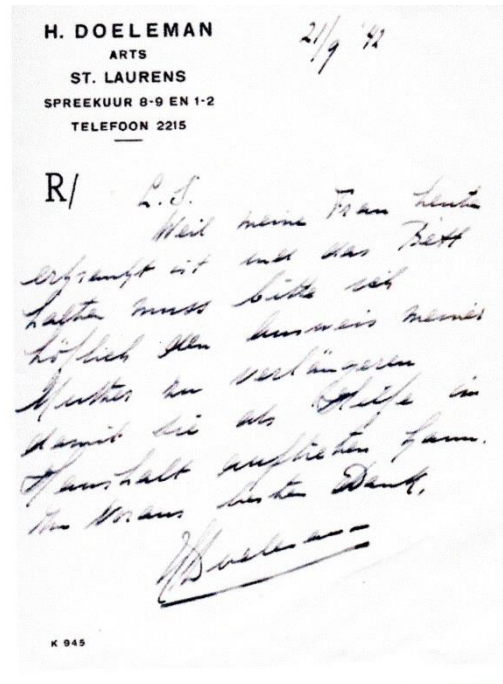 H. DOELEMAN
ARTS
ST. LAURENS
SPREEKUUR 8-9 EN 1-2
TELEFOON 2215
21/9 '42
R/ L.S.
Weil meine Frau heute
erkrankt ist und das Bett
halten muss bitte ich
höflich den Ausweis meiner
Mutter zu verlängeren
damit sie als Hilfe im
Haushalt auftreten kann.
Im Voraus besten Dank,
HDoeleman
K 945